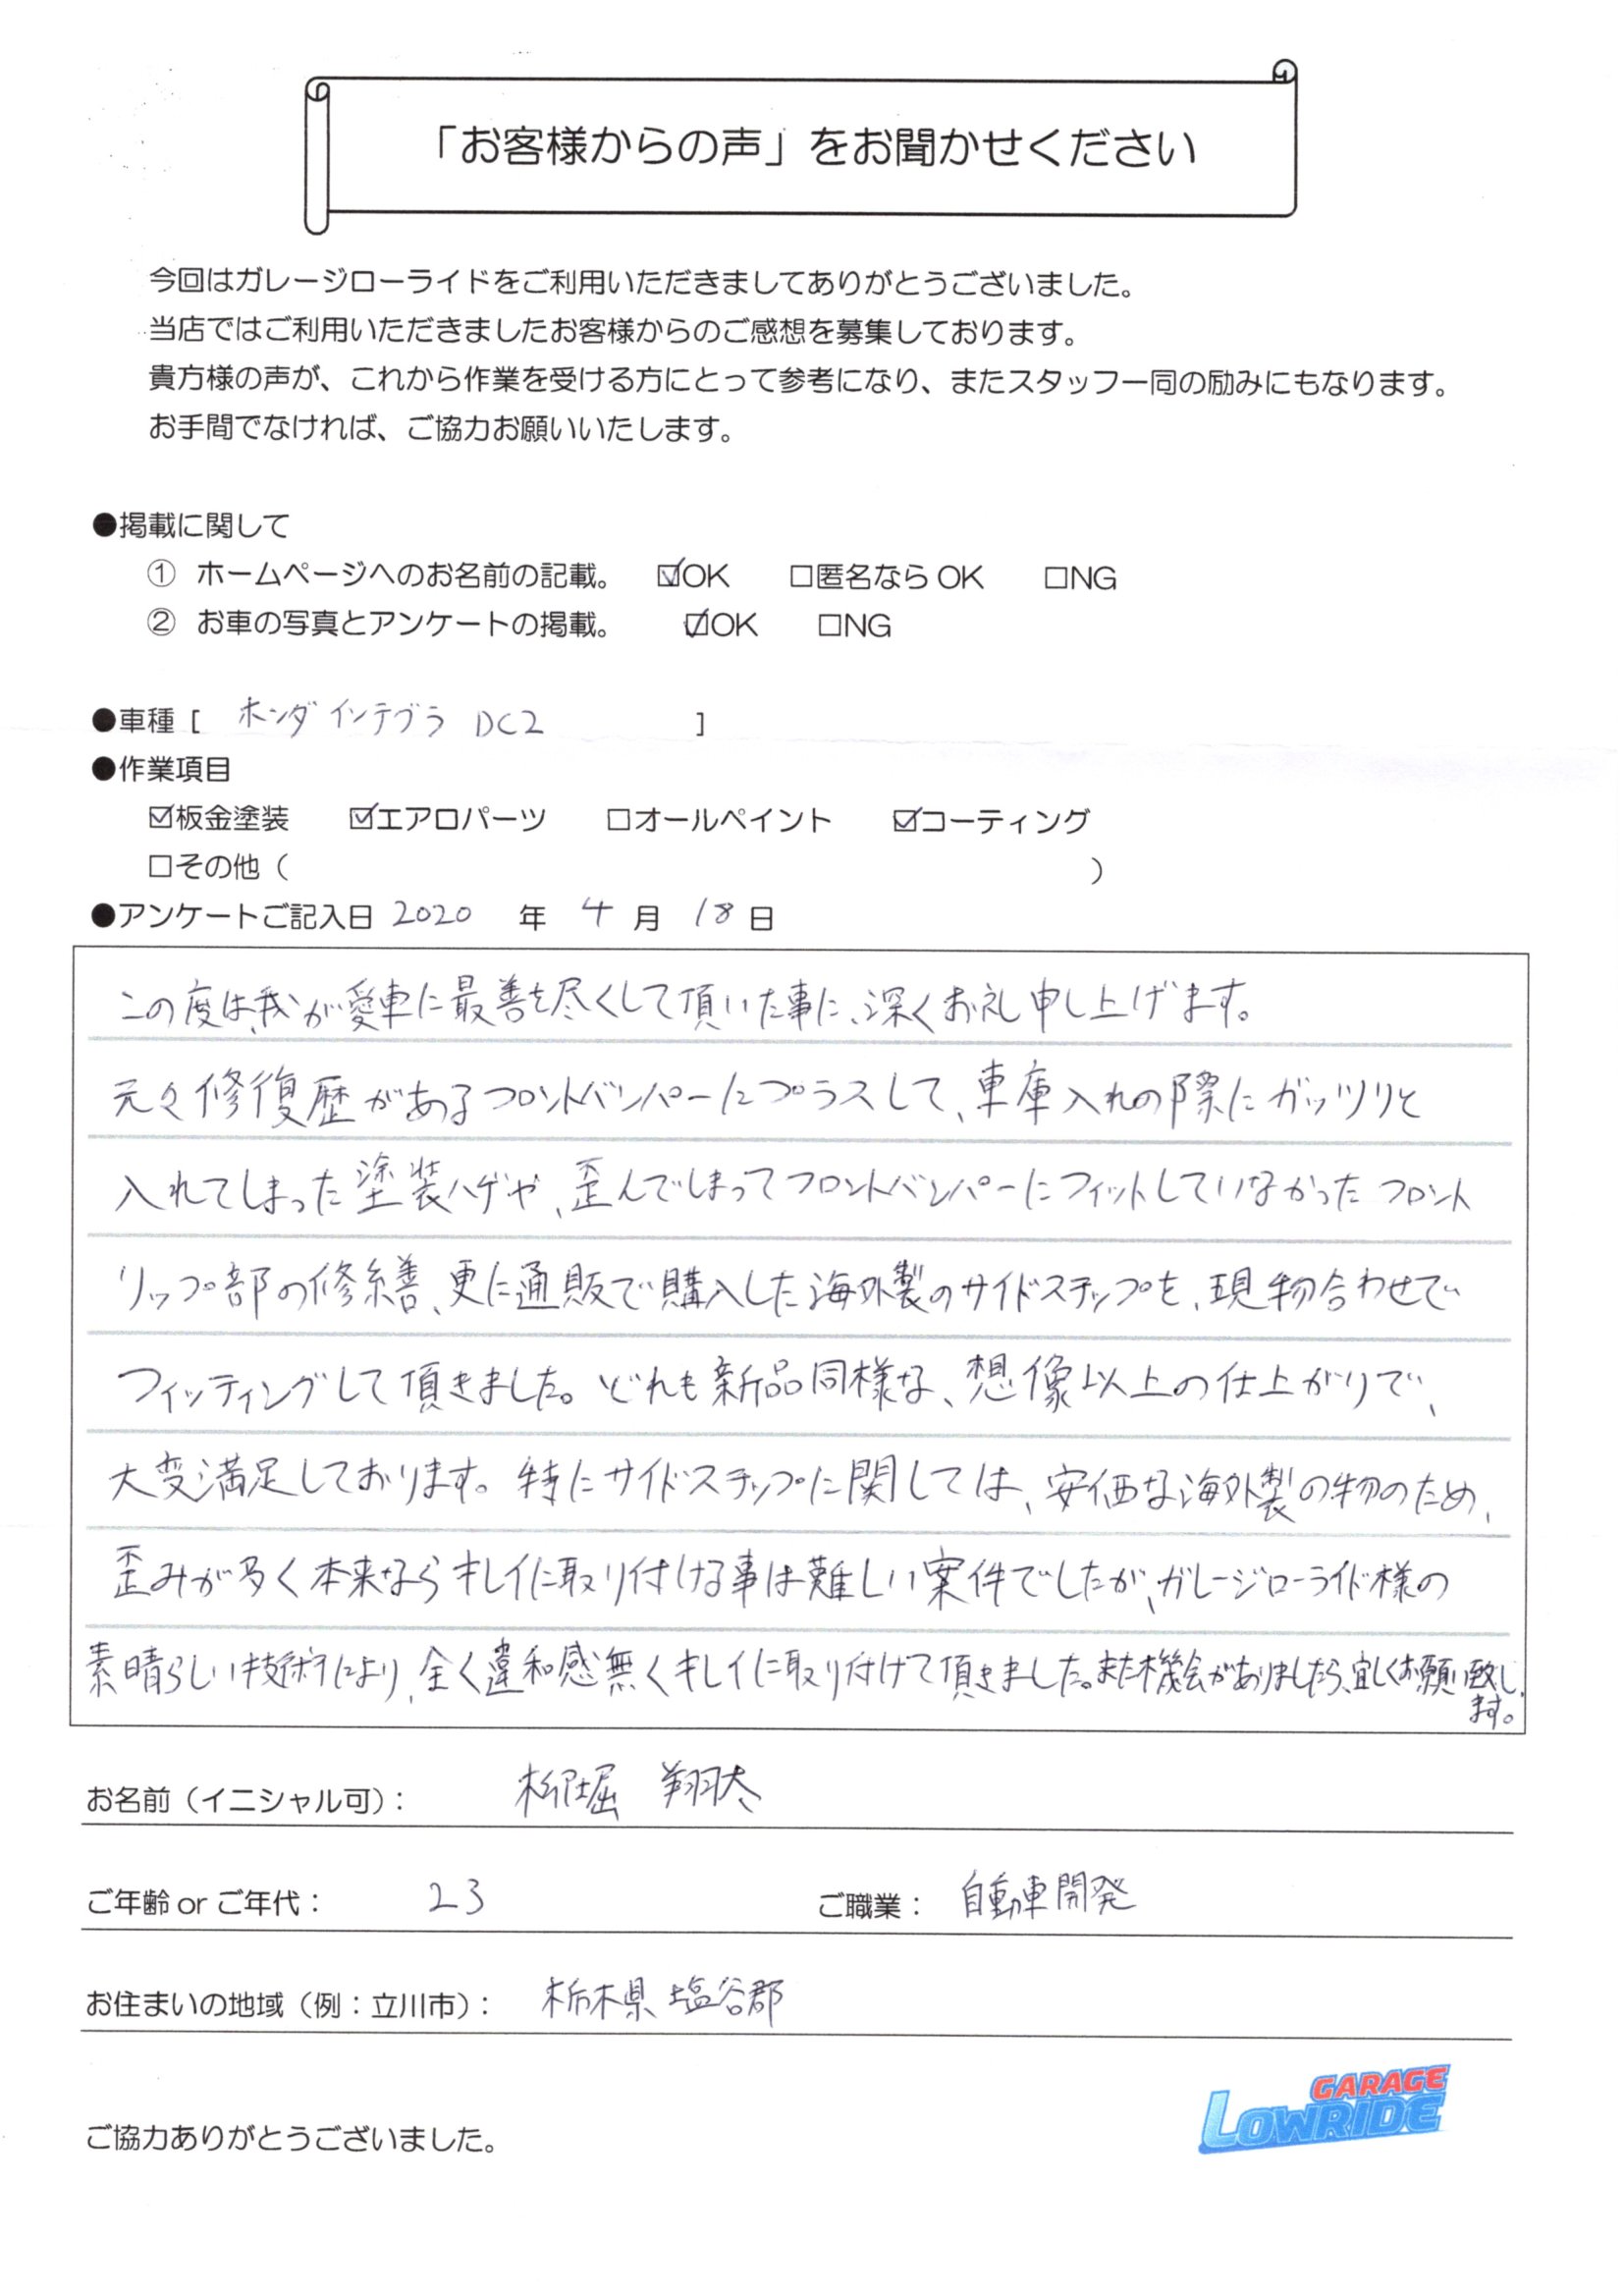 「お客様からの声」をお聞かせください
今回はガレージローライドをご利用いただきましてありがとうございました。
当店ではご利用いただきましたお客様からのご感想を募集しております。
貴方様の声が、これから作業を受ける方にとって参考になり、またスタッフ一同の励みにもなります。
お手間でなければ、ご協力お願いいたします。
●掲載に関して
① ホームページへのお名前の記載。 ☑OK □匿名ならOK □NG
② お車の写真とアンケートの掲載。 ☑OK □NG
●車種［ ホンダ インテグラ DC2 ］
●作業項目
☑板金塗装 ☑エアロパーツ □オールペイント ☑コーティング
□その他（ ）
●アンケートご記入日 2020 年 4 月 18 日
この度は、我が愛車に最善を尽くして頂いた事に、深くお礼申し上げます。
元々修復歴があるフロントバンパーにプラスして、車庫入れの際にガッツリと
入れてしまった塗装ハゲや、歪んでしまってフロントバンパーにフィットしていなかったフロント
リップ部の修繕、更に通販で購入した海外製のサイドステップを、現物合わせで
フィッティングして頂きました。どれも新品同様な、想像以上の仕上がりで、
大変満足しております。特にサイドステップに関しては、安価な海外製の物のため、
歪みが多く本来ならキレイに取り付ける事は難しい案件でしたが、ガレージローライド様の
素晴らしい技術により、全く違和感無くキレイに取り付けて頂きました。また機会がありましたら、宜しくお願い致し
ます。
お名前（イニシャル可）： 柳堀 翔太
ご年齢 or ご年代： 23 ご職業： 自動車開発
お住まいの地域（例：立川市）： 栃木県 塩谷郡
GARAGE
LOWRIDE
ご協力ありがとうございました。